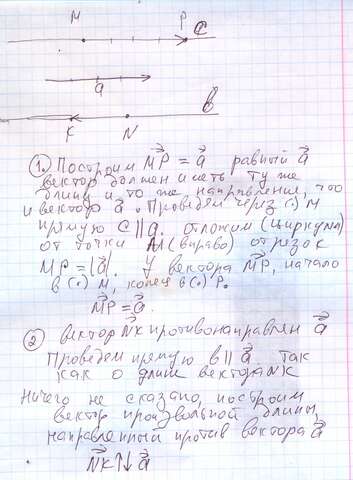 M P C
a⃗
K N b
1. Построим M⃗P = a⃗ равный a⃗
вектор должен иметь ту же
длину и то же направление, что
и вектор a⃗. Проведём через (·) M
прямую C || a⃗. отложим (циркулем)
от точки M (вправо) отрезок
MP = |a⃗|. У вектора M⃗P, начало
в (·) M, конец в (·) P.
M⃗P = a⃗.
2 вектор N⃗K противонаправлен a⃗
Проведём прямую b || a⃗. Так
как о длине вектора NK
ничего не сказано, построим
вектор произвольной длины,
направленный против вектора a⃗
N⃗K ↑↓ a⃗